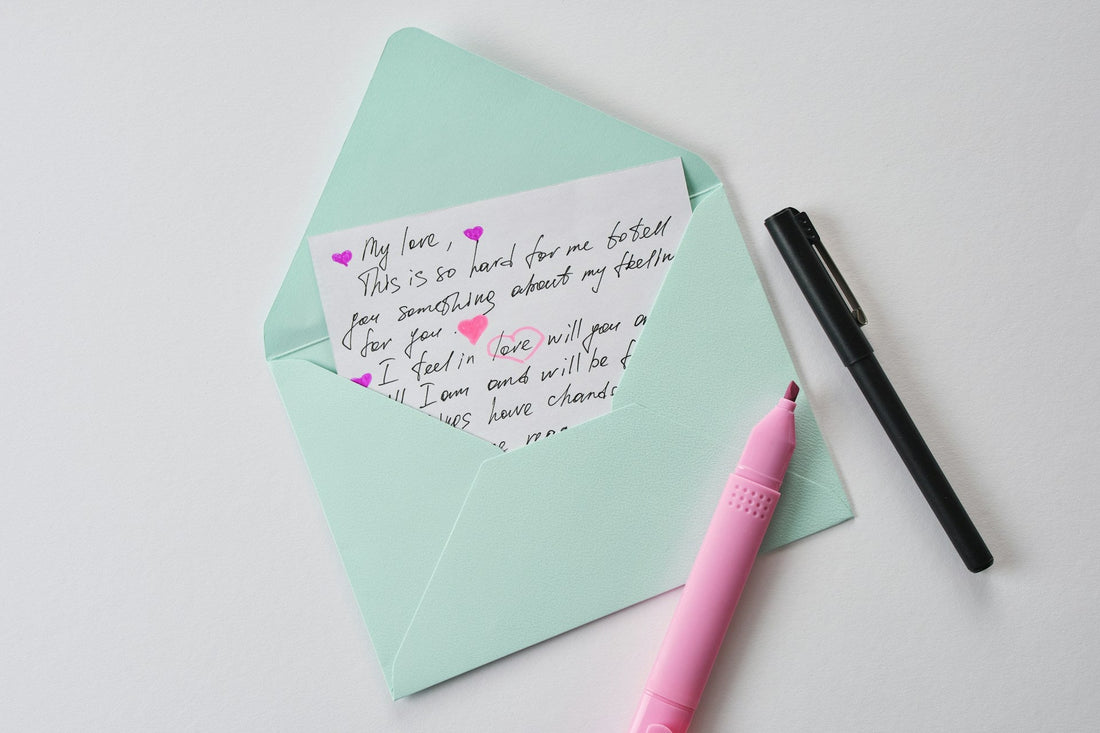 My love,
This is so hard for me to tell
you something about my feelin
for you.
I feel in love will you an
ll I am and will be f
have chands